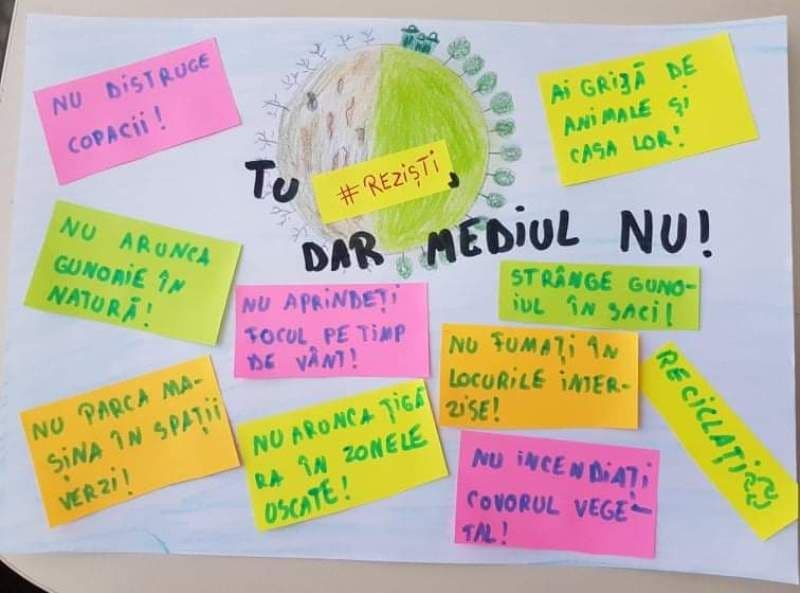 NU DISTRUGE
COPACII!
AI GRIJĂ DE
ANIMALE ȘI
CASA LOR!
TU #REZIȘTI,
DAR MEDIUL NU!
NU ARUNCA
GUNOAIE ÎN
NATURĂ!
NU APRINDEȚI
FOCUL PE TIMP
DE VÂNT!
STRÂNGE GUNO-
IUL ÎN SACI!
NU FUMAȚI ÎN
LOCURILE INTER-
ZISE!
NU PARCA MA-
ȘINA ÎN SPAȚII
VERZI!
NU ARUNCA ȚIGA
RA ÎN ZONELE
USCATE!
NU INCENDIAȚI
COVORUL VEGE-
TAL!
RECICLAȚI